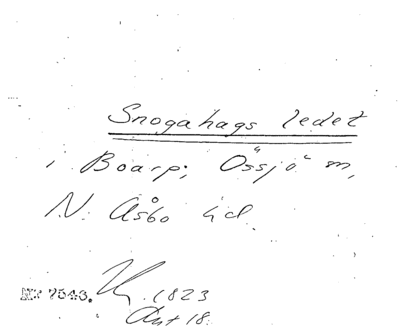 Snogahags ledet
i Boarp, Össjö m,
N. Åsbo hd.
Nr 7543. 1823
Ant 18.